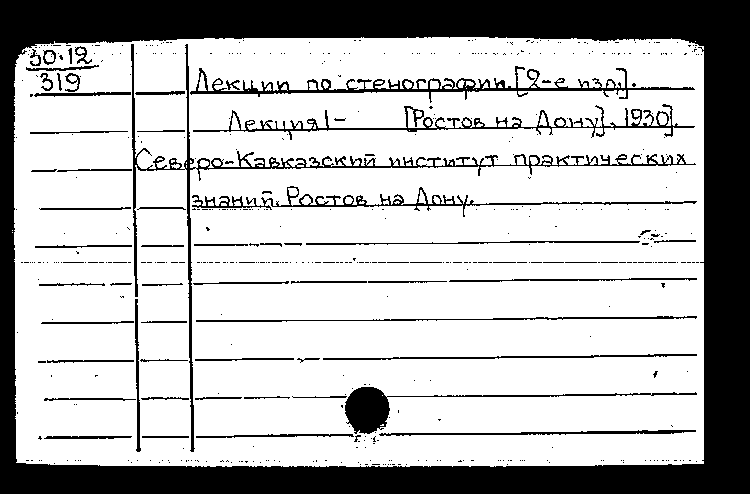 30.12
319
Лекции по стенографии. [2-е изд.].
Лекция 1- [Ростов на Дону], 1930].
Северо-Кавказский институт практических
знаний. Ростов на Дону.